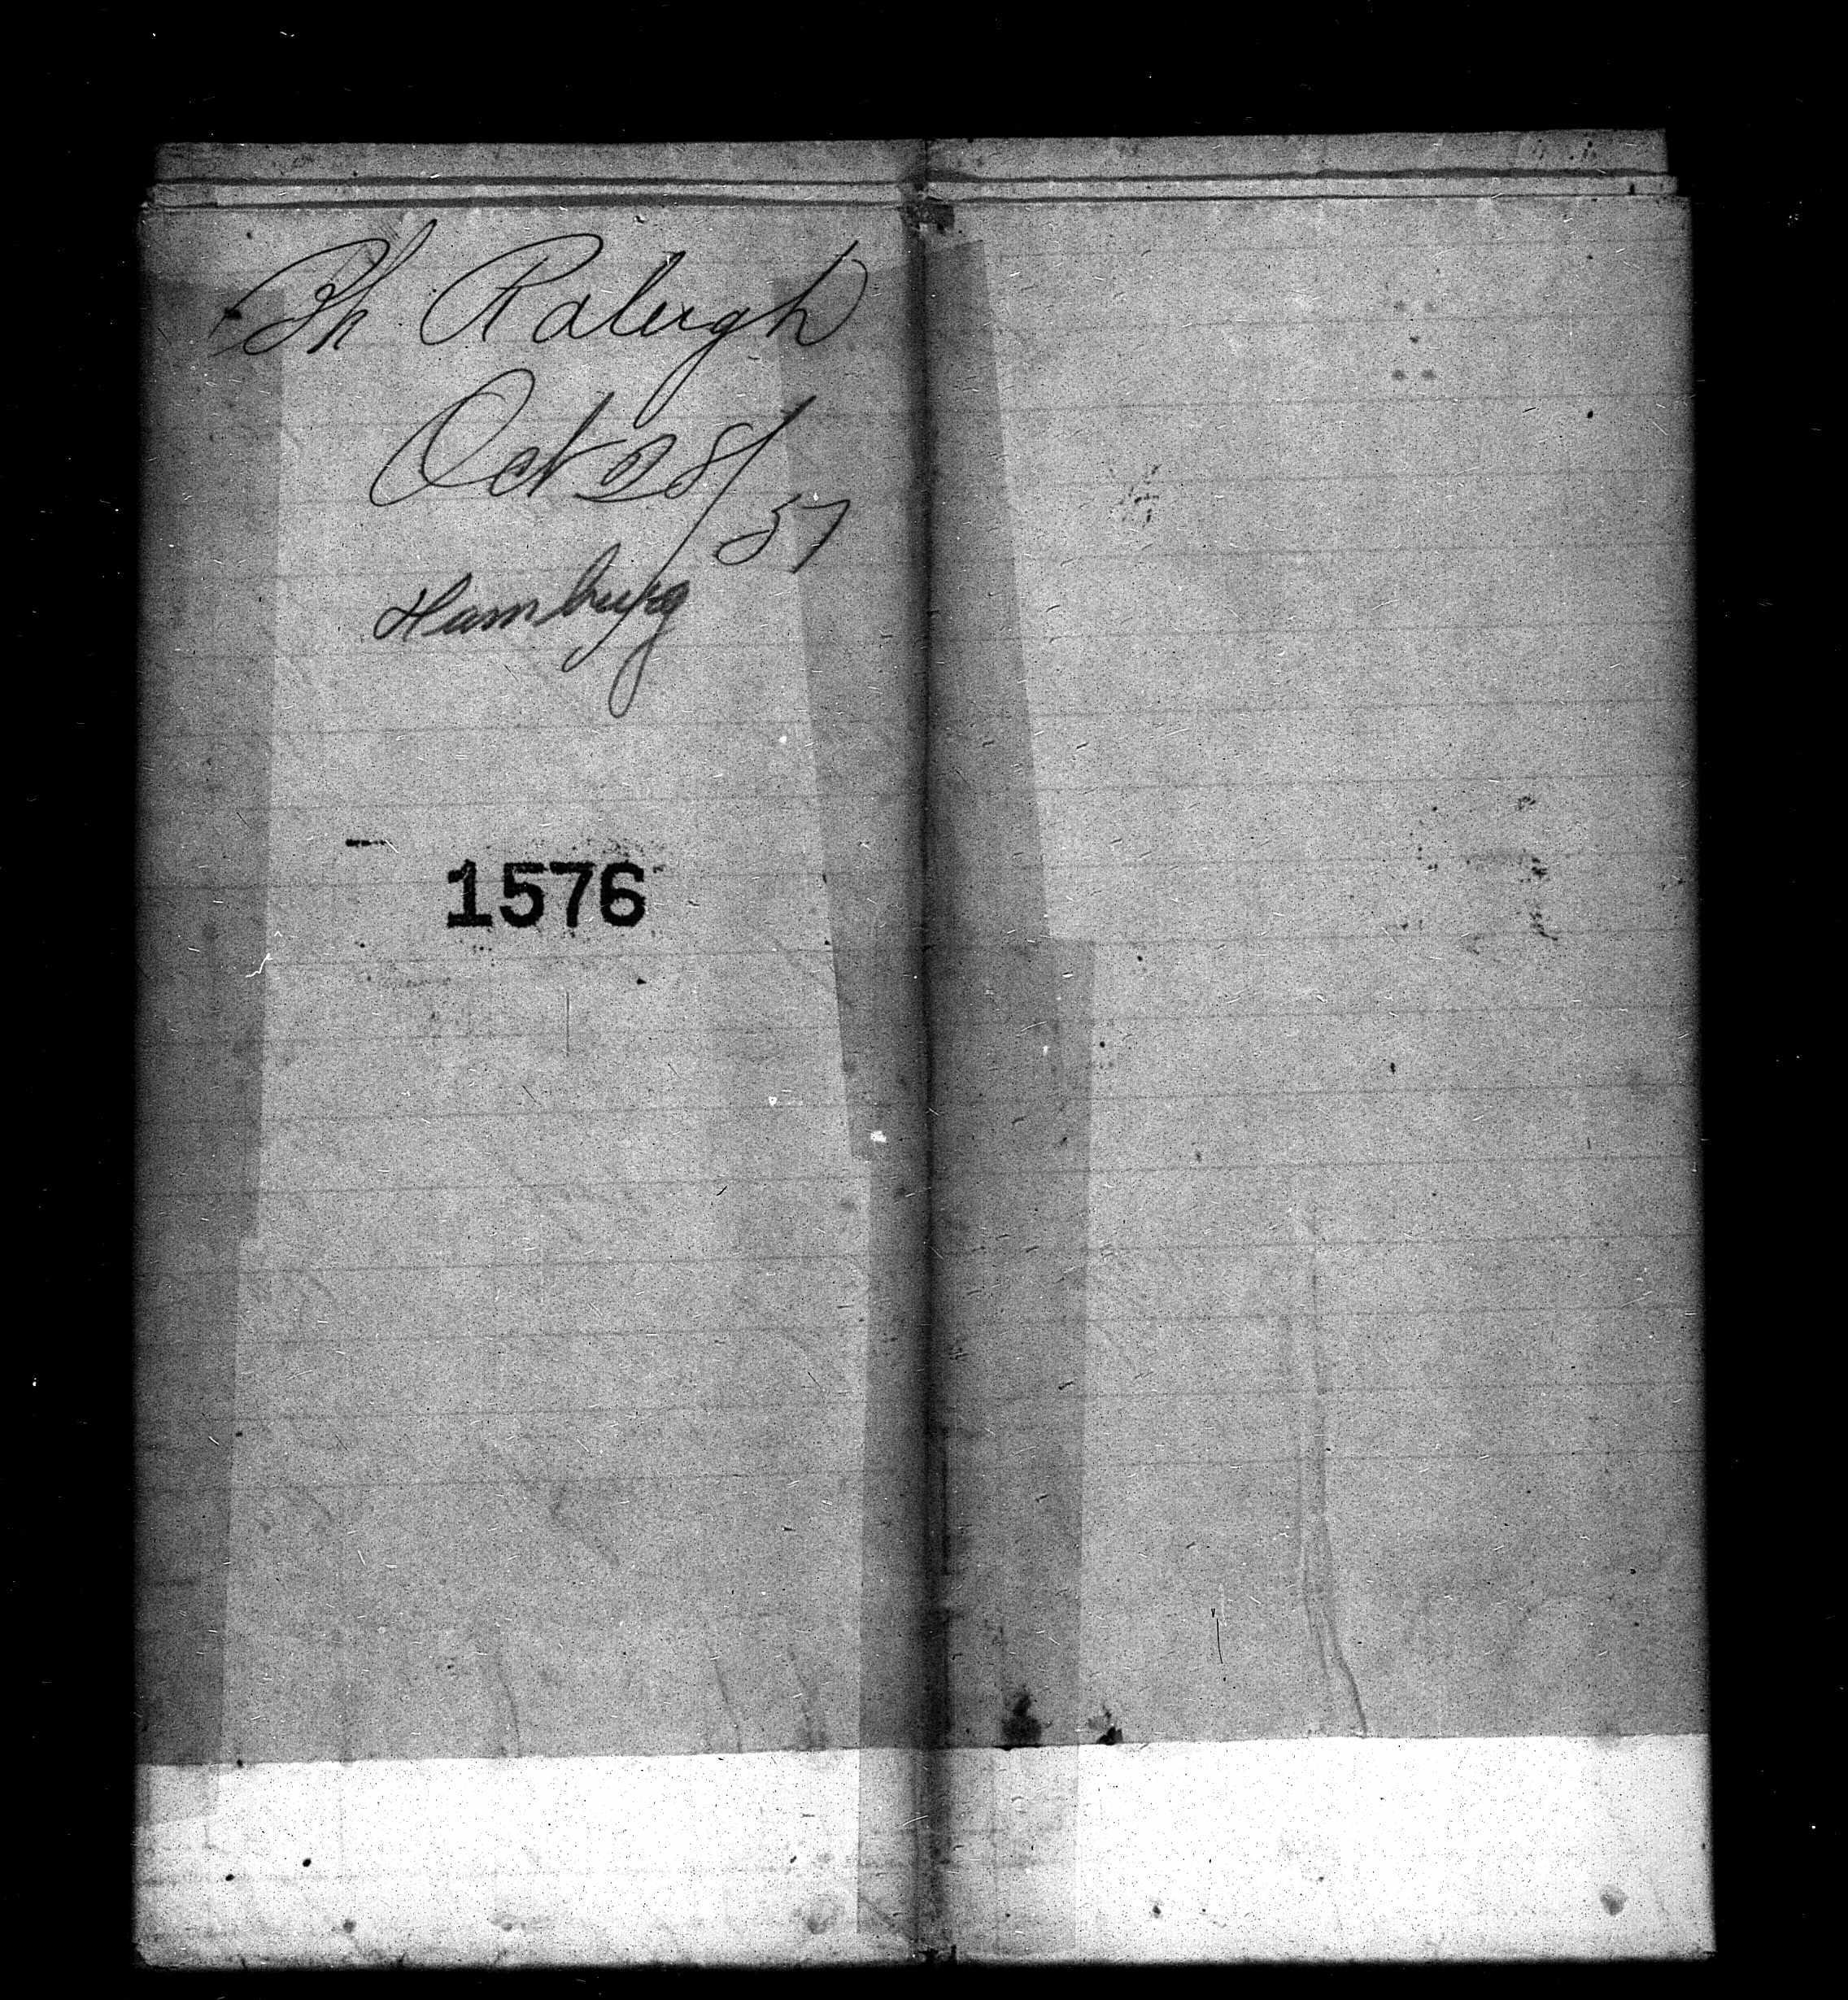 Bk Raleigh
Oct 28/57
Hamburg
1576